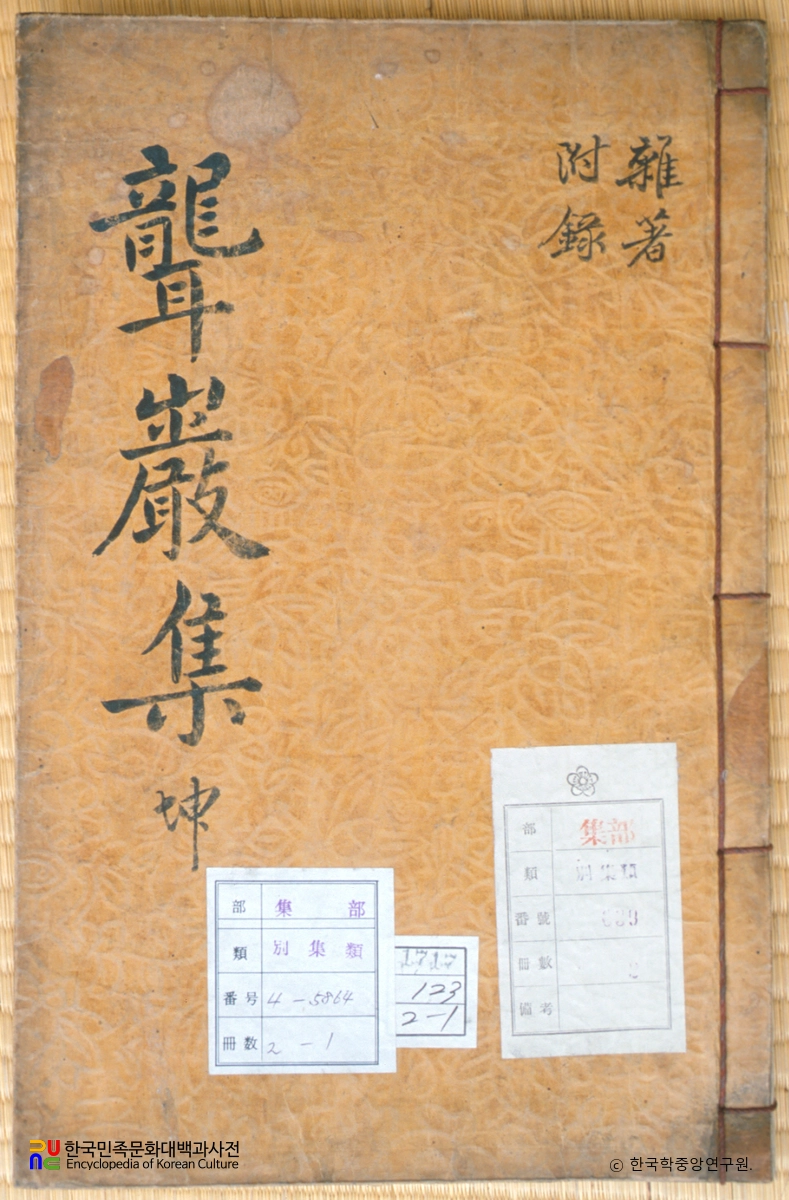 雜著
附錄
聾巖集 坤
部 集部
類 別集類
番号 4-5864
冊数 2-1
1717
123
2-1
部 集部
類 別集類
番號
冊數 2
備考
한국민족문화대백과사전
Encyclopedia of Korean Culture
ⓒ 한국학중앙연구원.